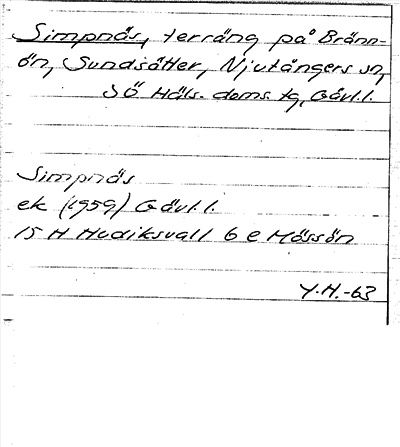 Simpnäs, terräng på Bränn-
ön, Sundsätter, Njutångers sn,
SÖ Häls. doms. tg, Gävl.l.
Simpnäs
ek (1959) Gävl.l.
15 H Hudiksvall 6 e Mössön
Y.H.-63